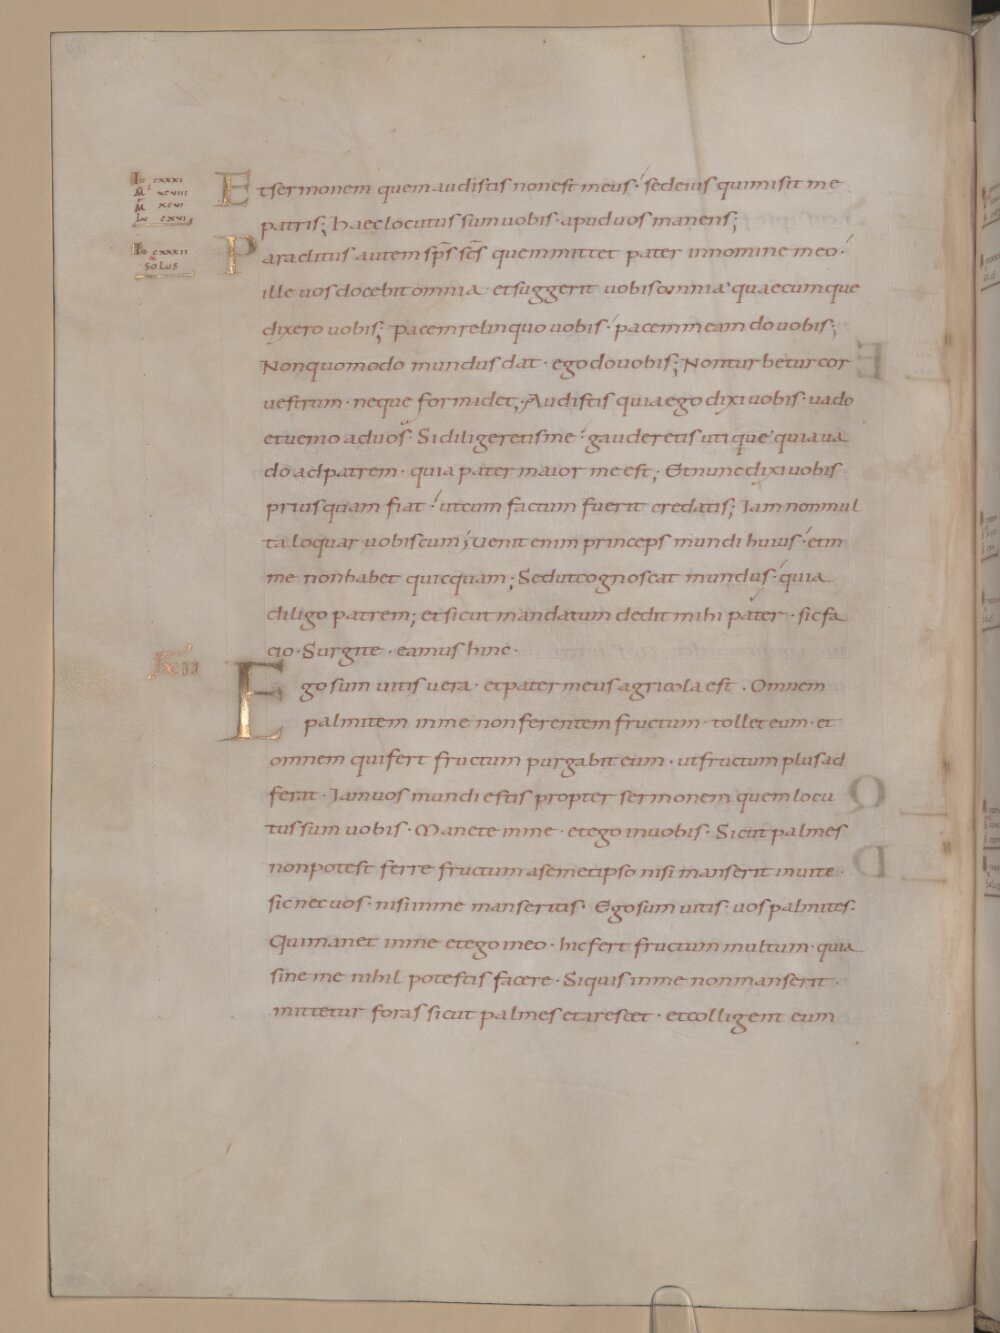 Io cxxxi
M̄ xcviii
M̄ xcvi
Lu cxvi
Et sermonem quem audistis non est meus· sed eius qui misit me
patris; Haec locutus sum uobis· apud uos manens;
Io cxxxii
solus
Paraclitus autem sp̄s sc̄s quem mittet pater in nomine meo·
ille uos docebit omnia· et suggerit uobis omnia quaecumque
dixero uobis; pacem relinquo uobis· pacem meam do uobis;
Non quomodo mundus dat· ego do uobis; Non turbetur cor
uestrum· neque formidet; Audistis quia ego dixi uobis· uado
et uenio ad uos· Si diligeretis me· gauderetis utique quia ua
do ad patrem· quia pater maior me est; Et nunc dixi uobis
prius quam fiat· ut cum factum fuerit credatis; Iam non mul
ta loquar uobiscum; Uenit enim princeps mundi huius· et in
me non habet quicquam; Sed ut cognoscat mundus· quia
diligo patrem; et sicut mandatum dedit mihi pater· sic fa
cio· Surgite· eamus hinc·
xii
Ego sum uitis uera· et pater meus agricola est· Omnem
palmitem in me non ferentem fructum· tollet eum· et
omnem qui fert fructum purgabit eum· ut fructum plus ad
ferat· Iam uos mundi estis propter sermonem quem locu
tus sum uobis· Manete in me· et ego in uobis· Sicut palmes
non potest ferre fructum a semetipso nisi manserit in uite·
sic nec uos· nisi in me manseritis· Ego sum uitis· uos palmites·
Qui manet in me et ego in eo· hic fert fructum multum· quia
sine me nihil potestis facere· Si quis in me non manserit·
mittetur foras sicut palmes et arescet· et colligent eum